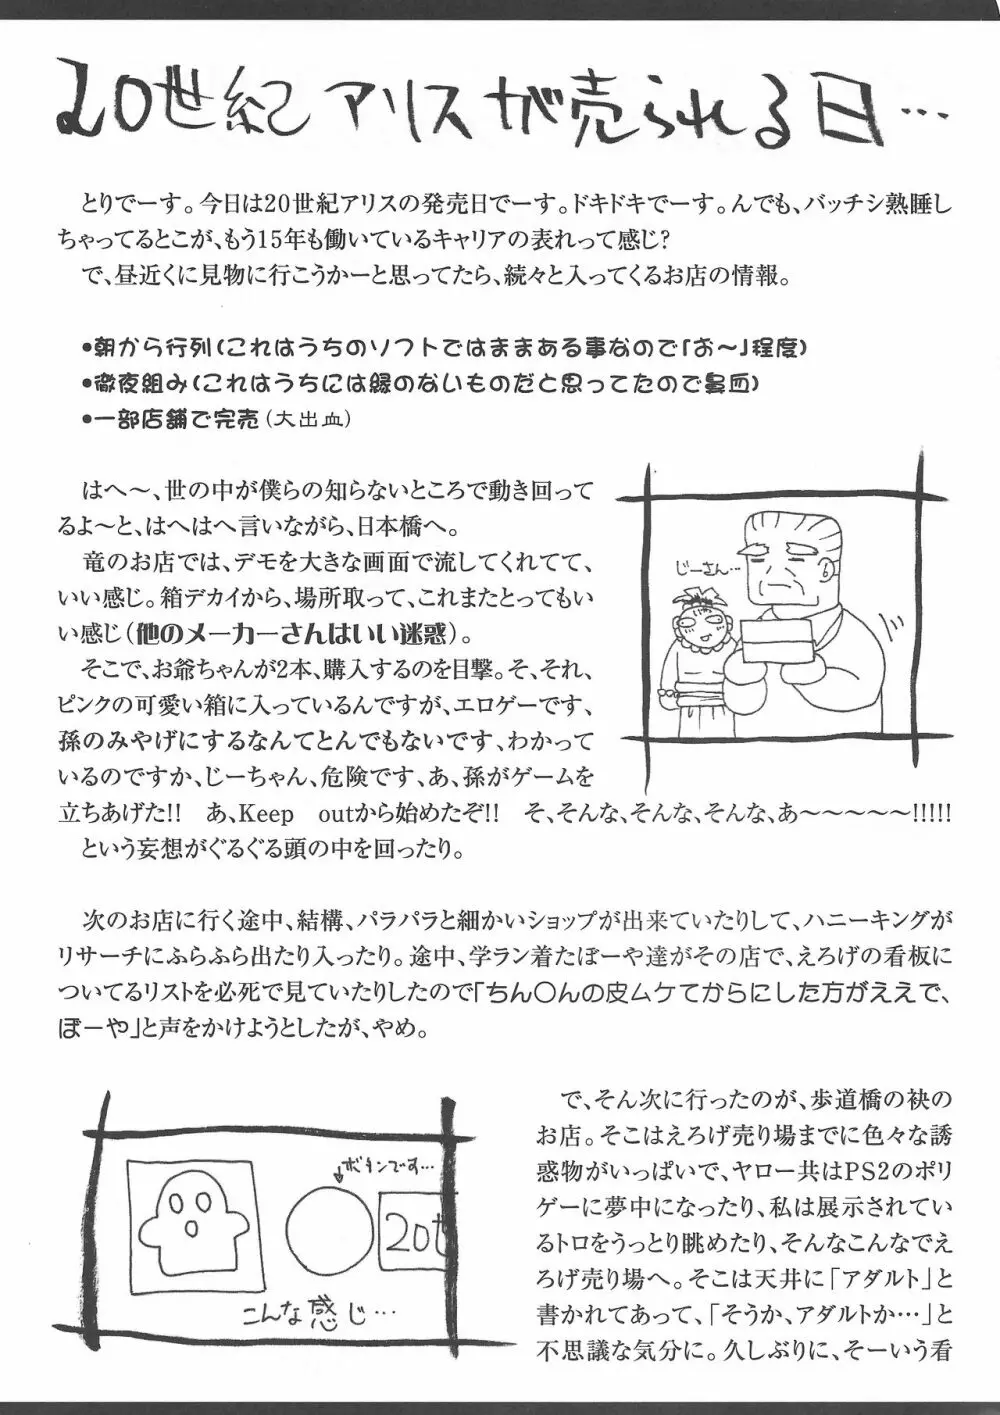 20世紀アリスが売られる日…
とりでーす。今日は20世紀アリスの発売日でーす。ドキドキでーす。んでも、バッチシ熟睡し
ちゃってるとこが、もう15年も働いているキャリアの表れって感じ?
で、昼近くに見物に行こうかーと思ってたら、続々と入ってくるお店の情報。
●朝から行列(これはうちのソフトではままある事なので「お〜」程度)
●徹夜組み(これはうちには縁のないものだと思ってたので鼻血)
●一部店舗で完売(大出血)
はへ〜、世の中が僕らの知らないところで動き回って
るよ〜と、はへはへ言いながら、日本橋へ。
竜のお店では、デモを大きな画面で流してくれてて、
いい感じ。箱デカイから、場所取って、これまたとってもい
い感じ(他のメーカーさんはいい迷惑)。
そこで、お爺ちゃんが2本、購入するのを目撃。そ、それ、
ピンクの可愛い箱に入っているんですが、エロゲーです、
孫のみやげにするなんてとんでもないです、わかって
いるのですか、じーちゃん、危険です、あ、孫がゲームを
立ちあげた!!　あ、Keep　outから始めたぞ!!　そ、そんな、そんな、そんな、あ〜〜〜〜〜!!!!!
という妄想がぐるぐる頭の中を回ったり。
じーさん…
次のお店に行く途中、結構、パラパラと細かいショップが出来ていたりして、ハニーキングが
リサーチにふらふら出たり入ったり。途中、学ラン着たぼーや達がその店で、えろげの看板に
ついてるリストを必死で見ていたりしたので「ちん〇んの皮ムケてからにした方がええで、
ぼーや」と声をかけようとしたが、やめ。
ボタンです…
20t
こんな感じ…
で、そん次に行ったのが、歩道橋の袂の
お店。そこはえろげ売り場までに色々な誘
惑物がいっぱいで、ヤロー共はPS2のポリ
ゲーに夢中になったり、私は展示されてい
るトロをうっとり眺めたり、そんなこんなでえ
ろげ売り場へ。そこは天井に「アダルト」と
書かれてあって、「そうか、アダルトか…」と
不思議な気分に。久しぶりに、そーいう看